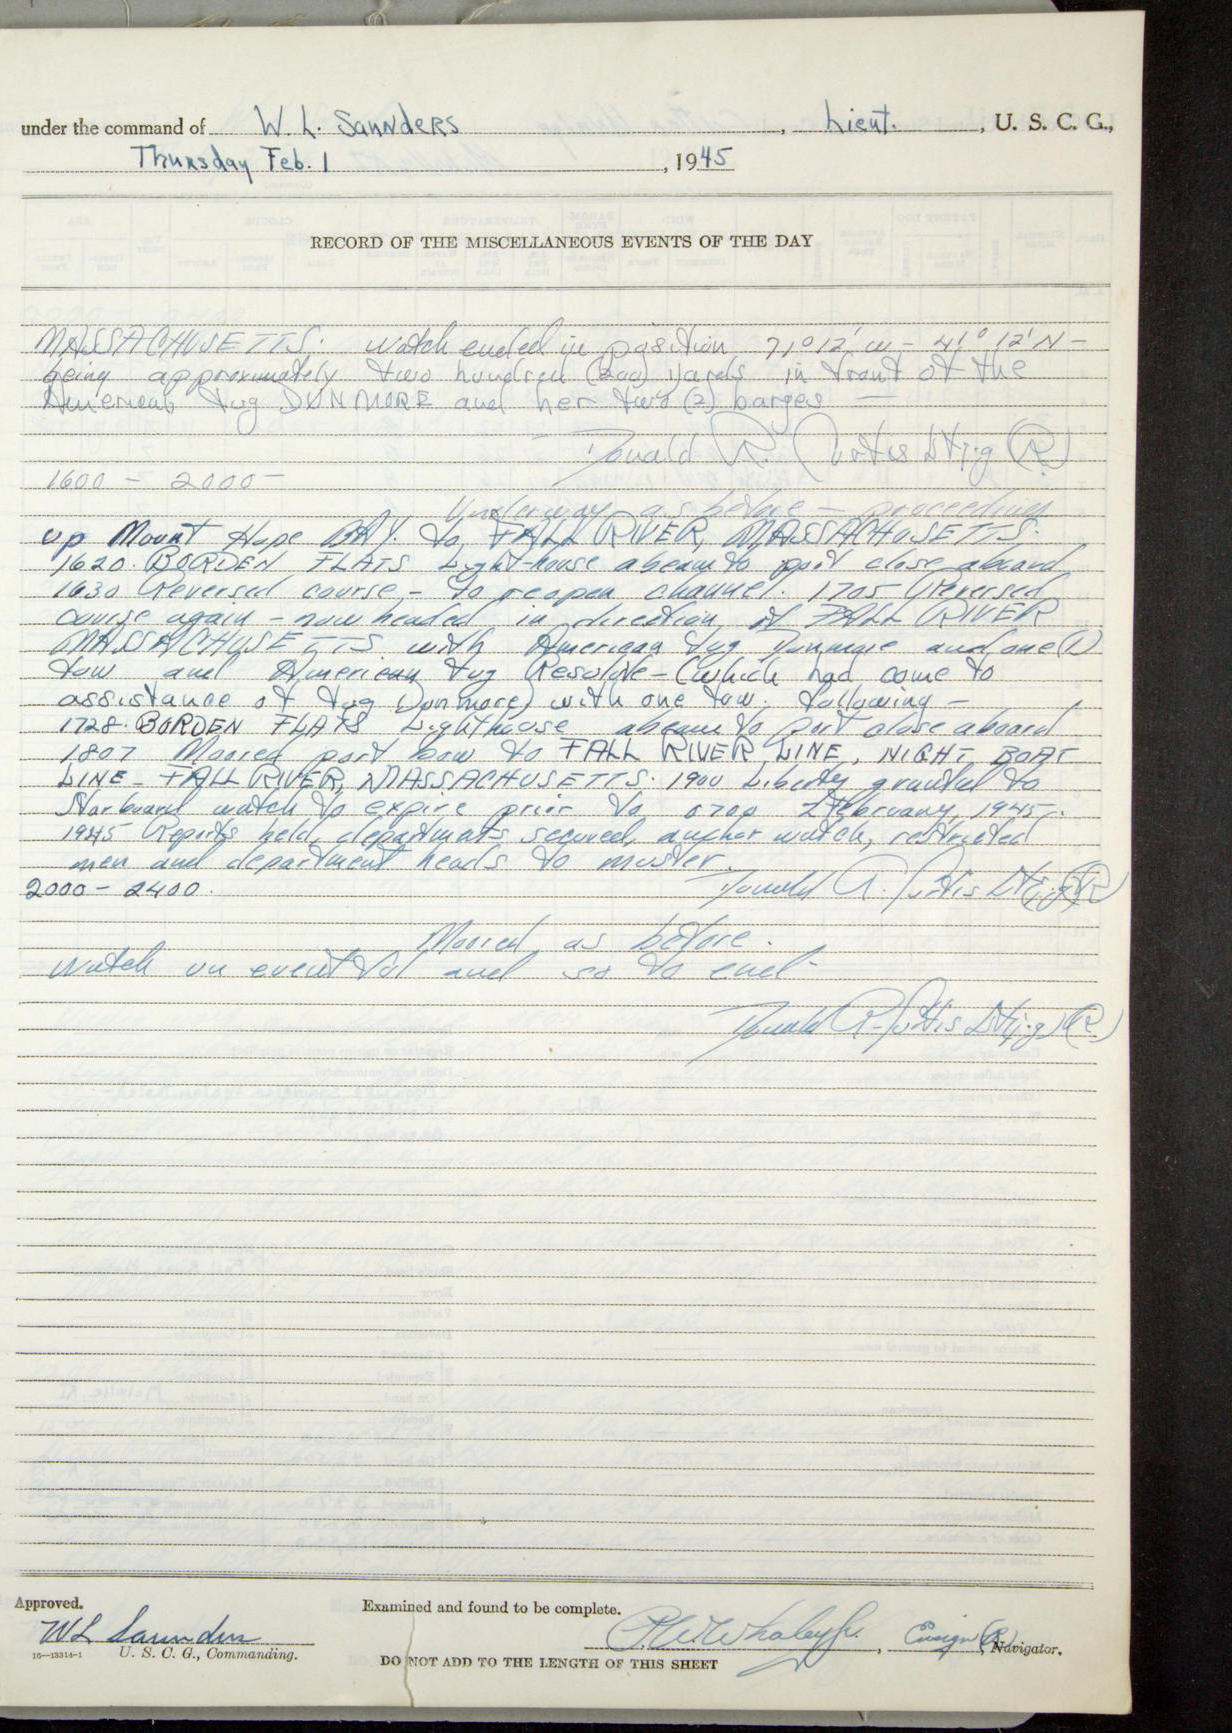 under the command of W. L. Saunders, Lieut., U. S. C. G.,
Thursday Feb. 1, 1945
RECORD OF THE MISCELLANEOUS EVENTS OF THE DAY
MASSACHUSETTS. Watch ended in position 71° 12' W - 41° 12' N -
being approximately two hundred (200) yards in front of the
American tug DUNMORE and her two (2) barges —
Donald R. Curtis Lt(j.g.) (R)
1600 - 2000 -
Underway as before - proceeding
up Mount Hope BAY. to FALL RIVER, MASSACHUSETTS.
1620. BORDEN FLATS Light-house abeam to port close aboard
1630 Reversed course, - to reopen channel. 1705 Reversed
course again - now headed in direction of FALL RIVER
MASSACHUSETTS with American tug Dunmore and one (1)
tow and American tug Resolute - (which had come to
assistance of tug Dunmore) with one tow. following -
1728. BORDEN FLATS Lighthouse abeam to port close aboard
1807 Moored port bow to FALL RIVER LINE, NIGHT BOAT
LINE - FALL RIVER, MASSACHUSETTS. 1900 Liberty granted to
Starboard watch to expire prior to 0700 2 February, 1945.
1945 Reports held, departments secured, anchor watch, restricted
men and department heads to muster.
2000 - 2400. Donald R. Curtis Lt(j.g.) (R)
Moored as before.
Watch un eventful and so to end -
Donald R. Curtis Lt(j.g.) (R)
Approved. Examined and found to be complete.
W L Saunders P.W. Whaley Jr., Ensign (R), Navigator.
16—13314-1 U. S. C. G., Commanding.
DO NOT ADD TO THE LENGTH OF THIS SHEET